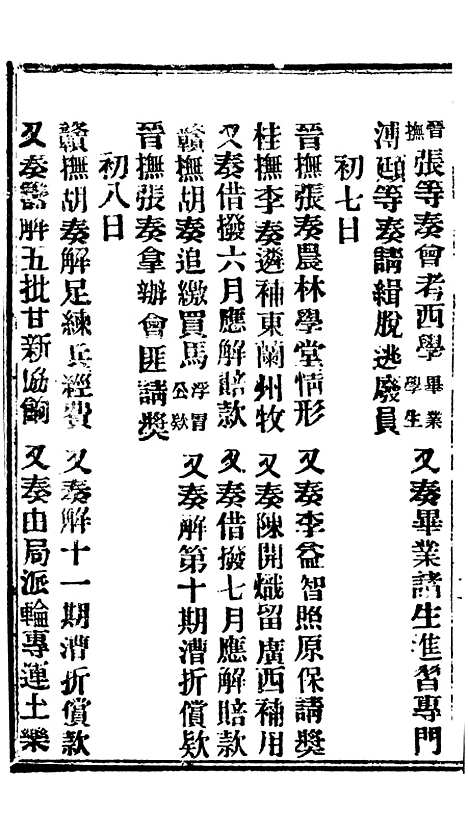 晉撫張等奏會考西學畢業學生　又奏畢業諸生進習專門
溥頲等奏請緝脫逃廢員
初七日
晉撫張奏農林學堂情形　又奏李益智照原保請獎
桂撫李奏遴補東蘭州牧　又奏陳開熾留廣西補用
又奏借撥六月應解賠款　又奏借撥七月應解賠款
贛撫胡奏追繳買馬浮冒公欵　又奏解第十期漕折償欵
晉撫張奏拿辦會匪請獎
初八日
贛撫胡奏解足練兵經費　又奏解十一期漕折償款
又奏籌解五批甘新協餉　又奏由局派輪專運土藥